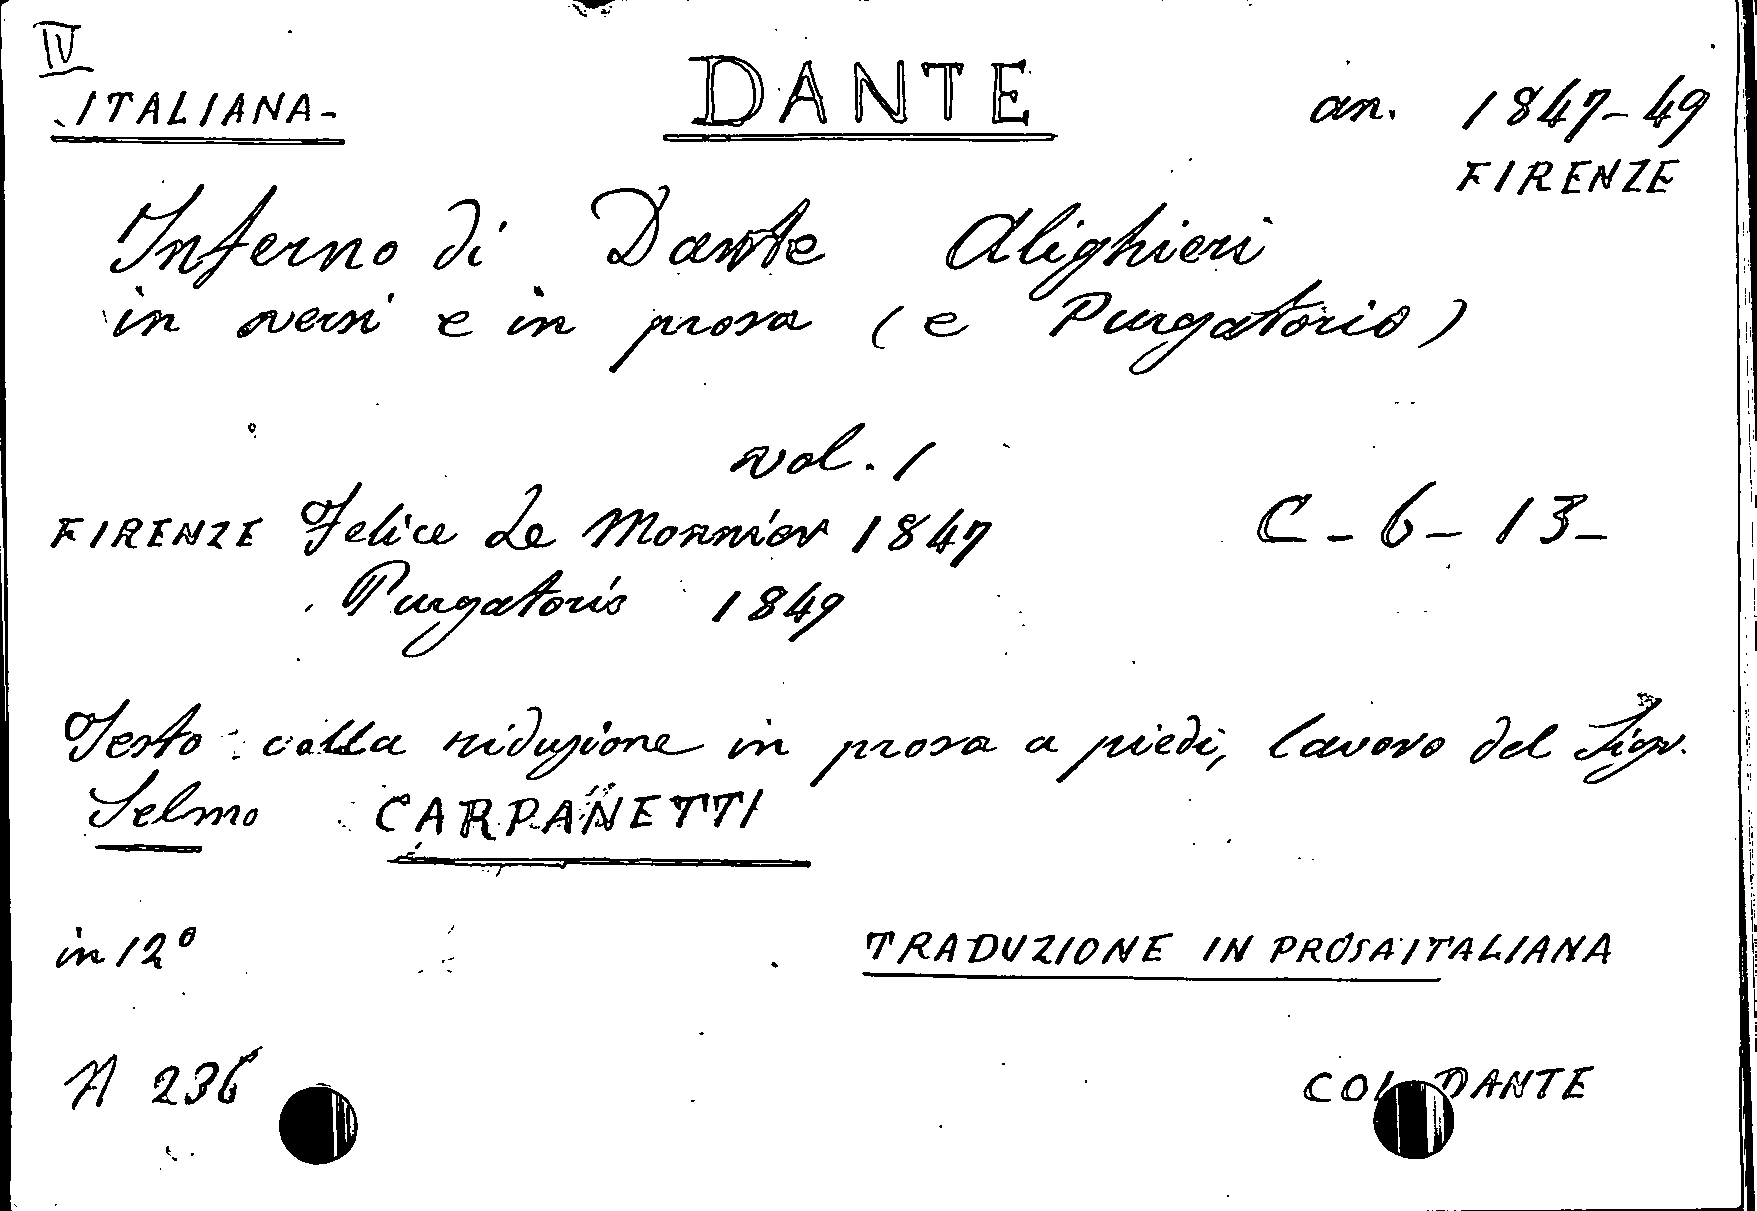 IV
ITALIANA- DANTE an. 1847-49
FIRENZE
Inferno di Dante Alighieri
in versi e in prosa (e Purgatorio)
vol. 1
FIRENZE Felice Le Monnier 1847 C-6-13-
Purgatorio 1849
Testo colla riduzione in prosa a piedi, lavoro del Sigr.
Selmo CARPANETTI
in 12º TRADUZIONE IN PROSA ITALIANA
A 236 COL DANTE